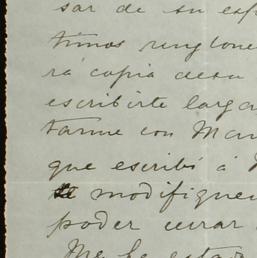 sar de su esp
timos renglone
rá copia desu
escribirte larga
tarme con Man
que escribí á
modifiquen
poder cerrar
Me he estar